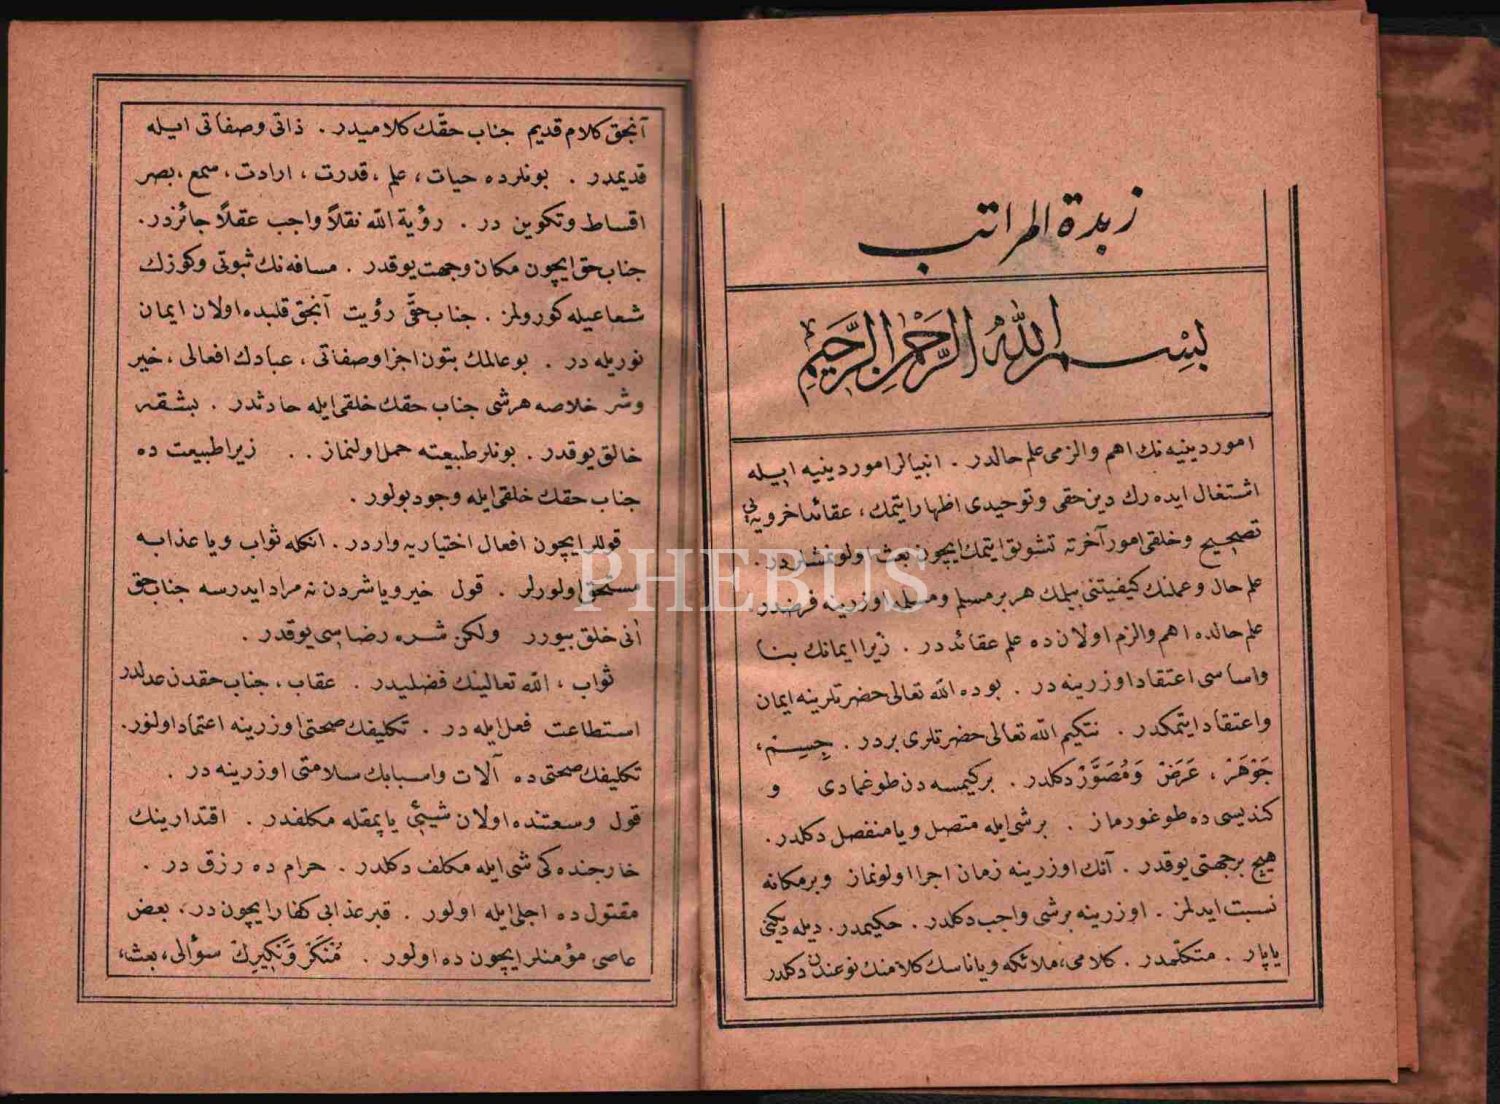 زبدة المراتب
بِسْمِ اللّٰهِ الرَّحْمٰنِ الرَّحِيمِ
امور دينيه نك اهم والزمى علم حالدر . انبيالر امور دينيه ايله
اشتغال ايده رك دين حقى وتوحيدى اظهار ايتمك، عقائد اخرويه يي
تصحيح وخلقى امور آخرته تشويق ايتمك ايچون بعث اولونمشلردر .
علم حال وعملنك كيفيتنى بيلمك هر بر مسلم ومسلمه اوزرينه فرضدر
علم حالده اهم والزم اولان ده علم عقائددر . زيرا ايمانك بنا
واساسى اعتقاد اوزرينه در . بوده الله تعالى حضرتلرينه ايمان
واعتقاد ايتمكدر . نتكيم الله تعالى حضرتلرى بردر . جِسِمْ،
جَوْهَرْ ، عَرَضْ وَمُصَوَّرْ دكلدر . بر كيمسه دن طوغمادى و
كنديسى ده طوغورماز . بر شى ايله متصل ويا منفصل دكلدر .
هيچ بر جهتى يوقدر . آنك اوزرينه زمان اجرا اولونماز وبر مكانه
نسبت ايدلمز . اوزرينه بر شى واجب دكلدر . حكيمدر . ديله ديكنى
ياپار . متكلمدر . كلامى، ملائكه ويا ناسك كلامنك نوعندن دكلدر
آنجق كلام قديم جناب حقّك كلاميدر . ذاتى وصفاتى ايله
قديمدر . بونلرده حيات، علم ، قدرت ، ارادت، سمع، بصر
اقساط وتكوين در . رؤية الله نقلاً واجب عقلاً جائزدر.
جناب حق ايچون مكان وجهت يوقدر . مسافه نك ثبوتى وكوزك
شعاعيله كورولمز . جناب حقّى رؤيت آنجق قلبده اولان ايمان
نوريله در . بو عالمك بتون اجزا وصفاتى ، عبادك افعالى ، خير
وشر خلاصه هر شى جناب حقك خلقى ايله حادثدر . بشقه
خالق يوقدر . بونلر طبيعته حمل اولنماز . . زيرا طبيعت ده
جناب حقك خلقى ايله وجود بولور .
قوللر ايچون افعال اختياريه واردر . انكله ثواب ويا عذابه
مستحق اولورلر . قول خير ويا شردن نه مراد ايدرسه جناب حق
اُنى خلق بيورر ولكن شره رضاسى يوقدر .
ثواب ، الله تعالينك فضليدر . عقاب ، جناب حقدن عدلدر
استطاعت فعل ايله در . تكليفك صحتى اوزرينه اعتماد اولنور.
تكليفك صحتى ده آلات واسبابك سلامتى اوزرينه در .
قول وسعتنده اولان شيئى ياپمقله مكلفدر . اقتدارينك
خارجنده كى شى ايله مكلف دكلدر . حرام ده رزق در .
مقتول ده اجلى ايله اولور . قبر عذابى كفار ايچون در، بعض
عاصى مؤمنلر ايچون ده اولور . مُنْكَرْ وَنَكِيرِكْ سؤالى، بعث،
PHEBUS